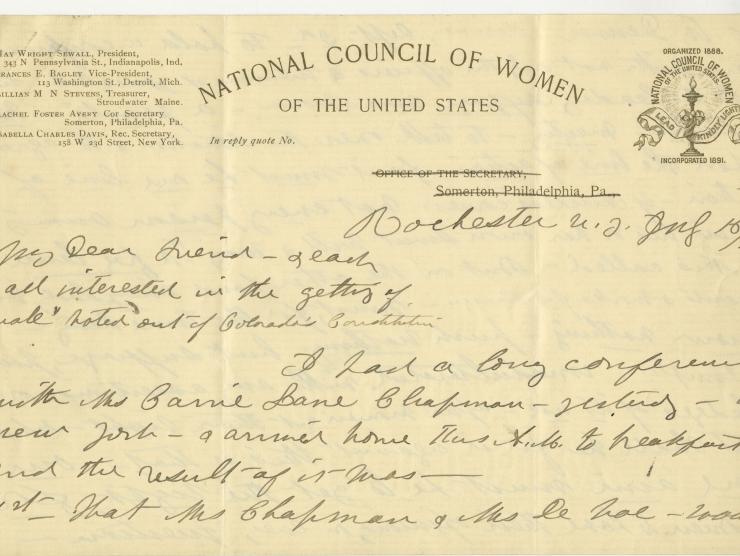 MAY WRIGHT SEWALL, President,
343 N Pennsylvania St., Indianapolis, Ind.
FRANCES E. BAGLEY Vice-President,
113 Washington St., Detroit, Mich.
LILLIAN M N STEVENS, Treasurer,
Stroudwater Maine.
RACHEL FOSTER AVERY Cor Secretary
Somerton, Philadelphia, Pa.
ISABELLA CHARLES DAVIS, Rec. Secretary,
158 W 23d Street, New York.
NATIONAL COUNCIL OF WOMEN
OF THE UNITED STATES
In reply quote No.
ORGANIZED 1888.
NATIONAL COUNCIL OF WOMEN
OF THE UNITED STATES
LEAD KINDLY LIGHT
INCORPORATED 1891.
OFFICE OF THE SECRETARY,
Somerton, Philadelphia, Pa.,
Rochester N. Y.
My Dear Friend - & each
all interested in the getting of
male" voted out of Colorado's Constitution
I had a long conferen
with Mrs Carrie Lane Chapman - yesterday -
New York - & arrived home this A.M. to breakfast
and the result of it was —
1st - That Mrs Chapman & Mrs De Voe -